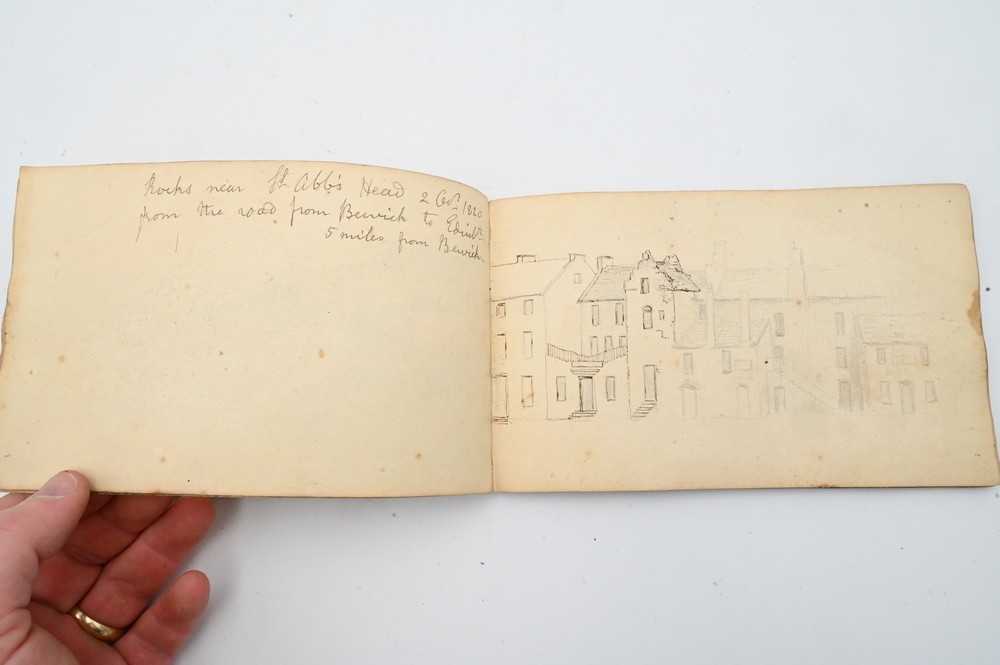 Rocks near St. Abb's Head 2 Octr. 1820
from the road from Berwick to Edinbh.
5 miles from Berwick.